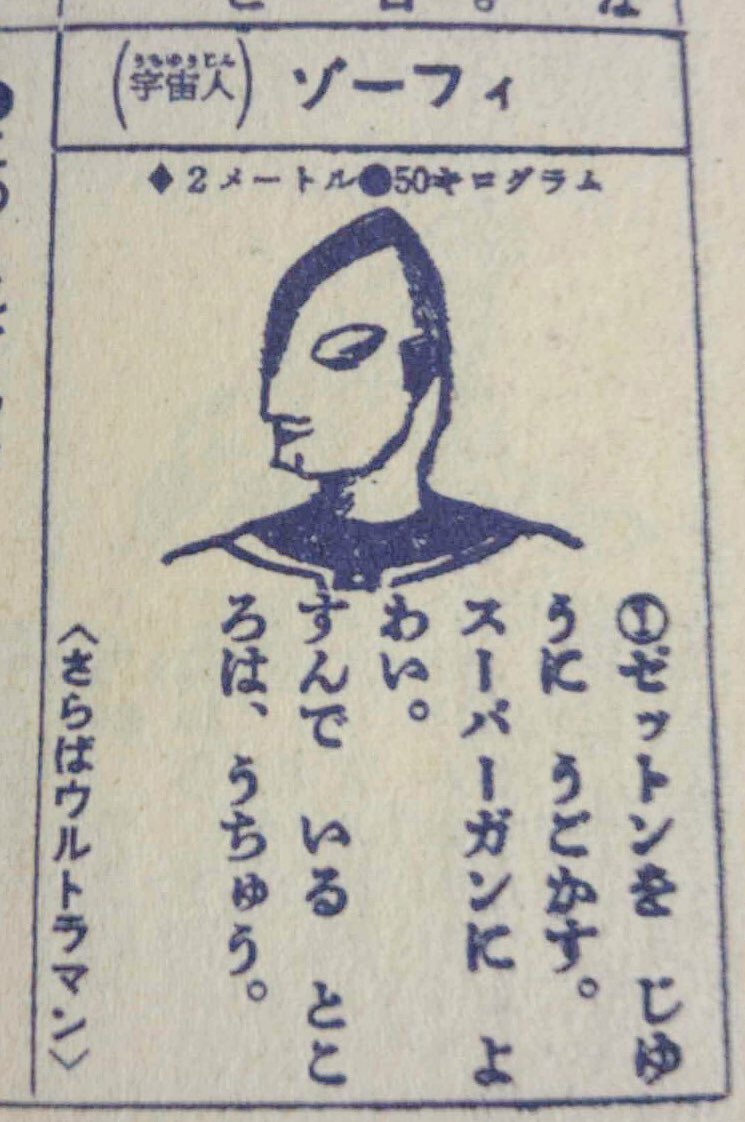 (宇宙人) ゾーフィ
うちゅうじん
◆2メートル●50キログラム
①ゼットンを じゆ
うに うごかす。
スーパーガンに よ
わい。
すんで いる とこ
ろは、うちゅう。
〈さらばウルトラマン〉